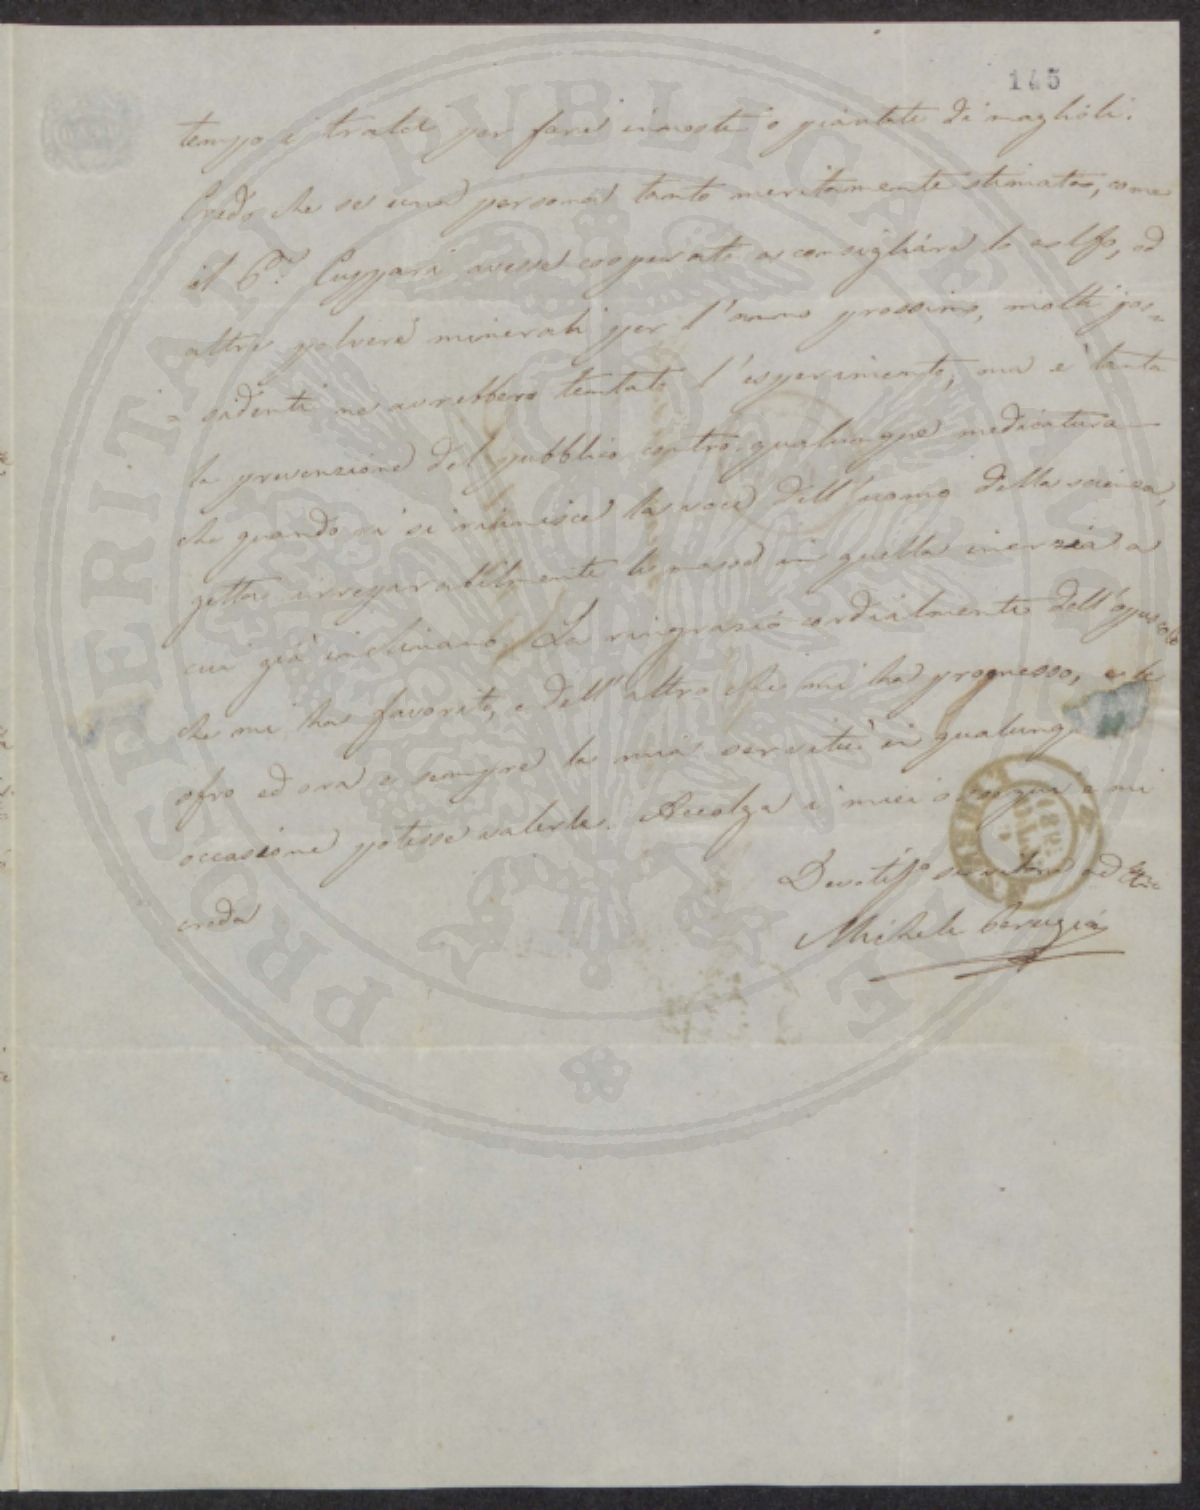 145
tempo i tralci per fare innesti o piantate di maglioli.
Credo che se una persona tanto meritamente stimata, come
il P.r Cuppari avesse cooperato a consigliare lo zolfo, od
altre polveri minerali per l'anno prossimo, molti pos=
=sidenti ne avrebbero tentato l'esperimento, ma è tanta
la prevenzione del pubblico contro qualunque medicatura
che quando vi si riunisce la voce dell'uomo della scienza,
getta irreparabilmente le masse in quella inerzia a
cui già inclinano. La ringrazio cordialmente dell'opuscolo
che mi ha favorito, e dell'altro che mi ha promesso, e le
ofro ed ora e sempre la mia servitù in qualunq
occasione potesse valerle. Accolga i miei ossequi e mi
creda
Devotis.o servitore ed
Michele Perugia
PROSPERITATI PUBLICAE AUGENDAE